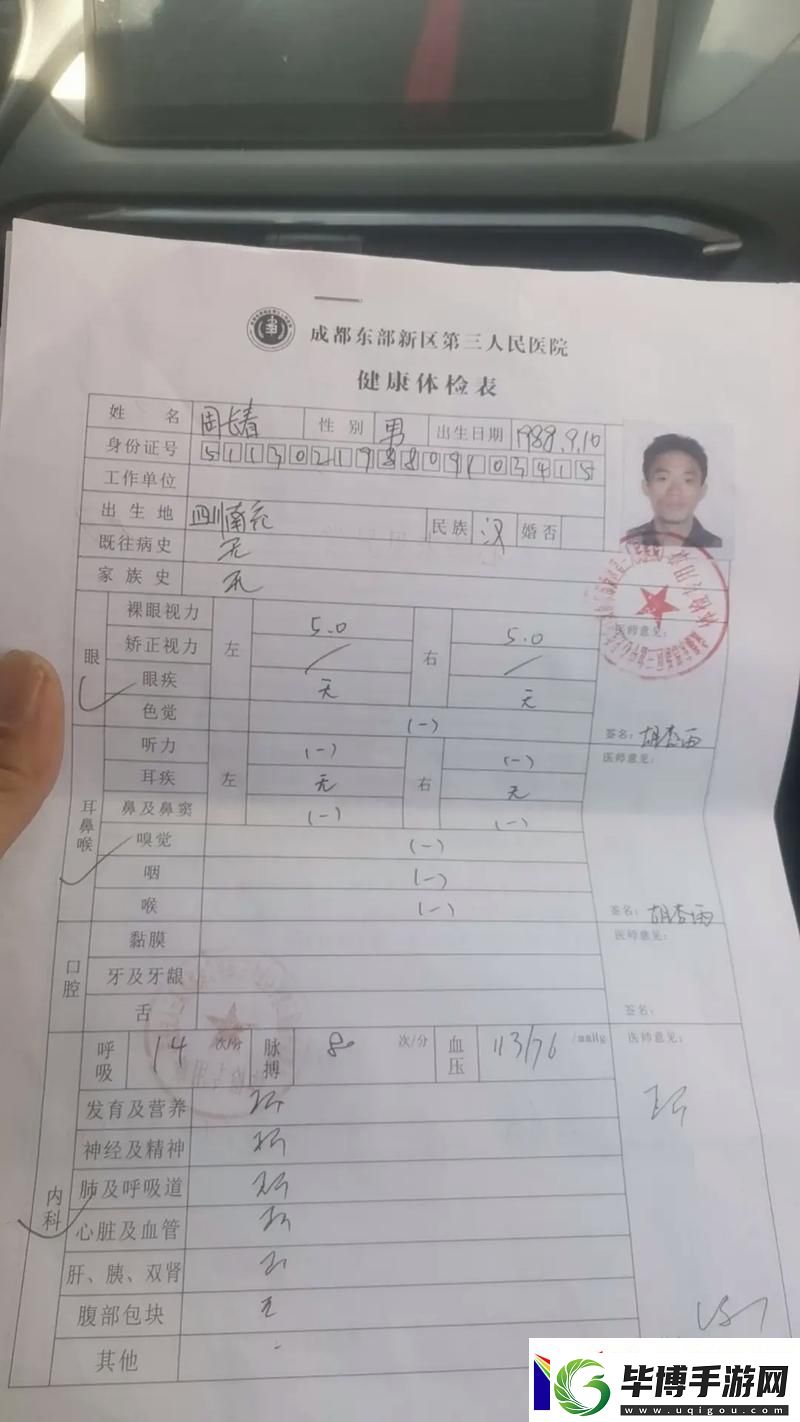 成都东部新区第三人民医院
健康体检表
姓名 周长春 性别 男 出生日期 1988.9.10
身份证号 511302198809103415
工作单位
出生地 四川南充 民族 汉 婚否
既往病史 无
家族史 无
眼 裸眼视力 左 5.0 右 5.0 医师意见：
矫正视力 / /
眼疾 无 无
色觉 (-) 签名：胡杏雨
耳鼻喉 听力 左 (-) 右 (-) 医师意见：
耳疾 无 无
鼻及鼻窦 (-) (-)
嗅觉 (-)
咽 (-)
喉 (-) 签名：胡杏雨
口腔 黏膜 医师意见：
牙及牙龈
舌 签名：
内科 呼吸 14 次/分 脉搏 80 次/分 血压 113/76 /mmHg 医师意见：
发育及营养
神经及精神
肺及呼吸道
心脏及血管
肝、胰、双肾
腹部包块 无
其他 -
毕博手游网
www.uqigou.com